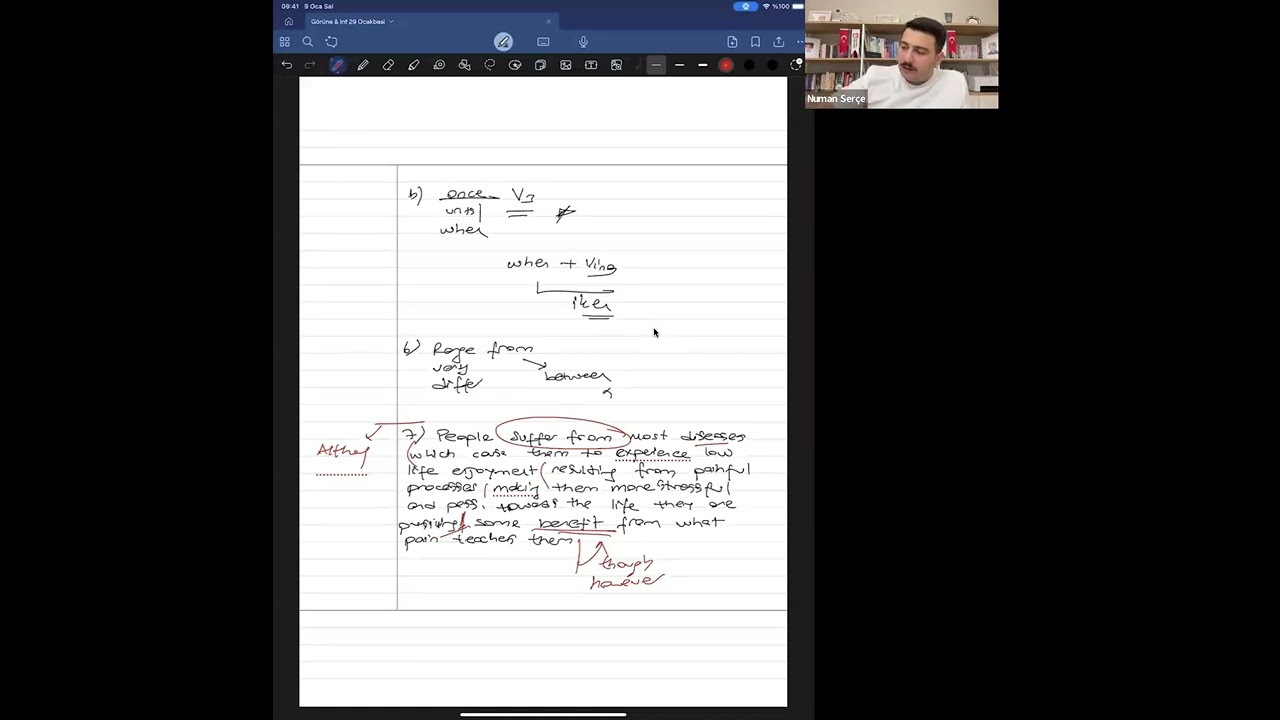 09:41 9 Oca Sal
%100
Görüne & Inf 29 Ocakbasi
Numan Serçe
b) once V3
until
when
when + Ving
iken
6) Range from
vary
differ
between
7) People suffer from most diseases
which case them to experience low
life enjoyment resulting from painful
processes making them more stressful
and pess. towards the life they are
some benefit from what
pain teaches them
though
however